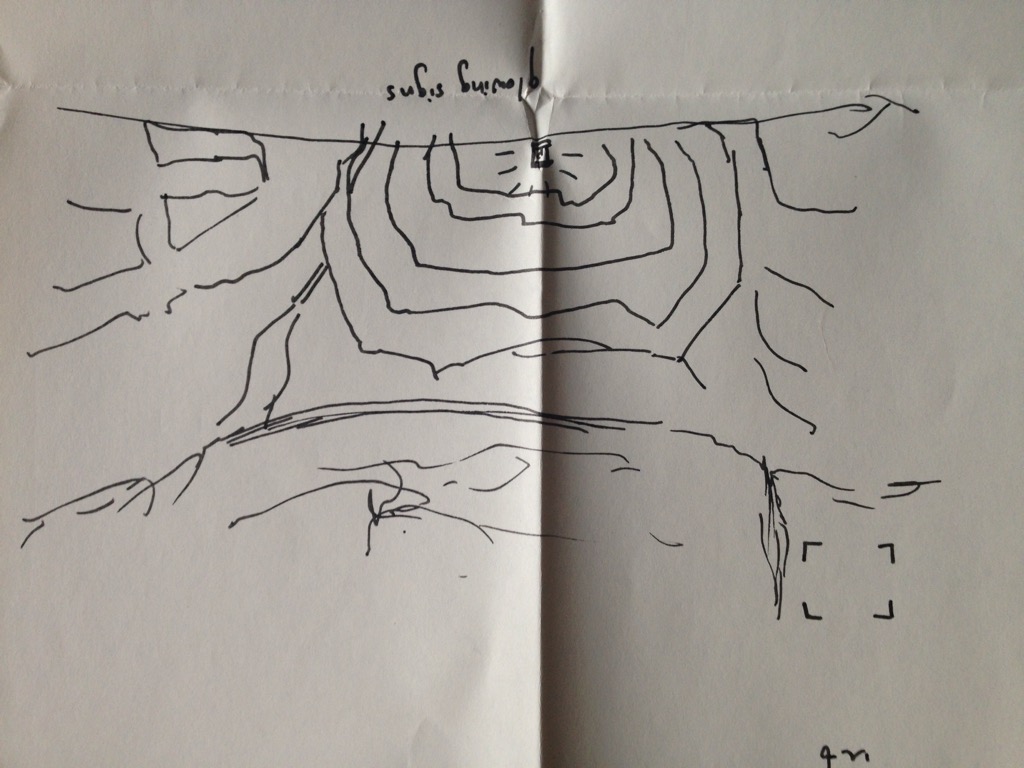 glowing signs